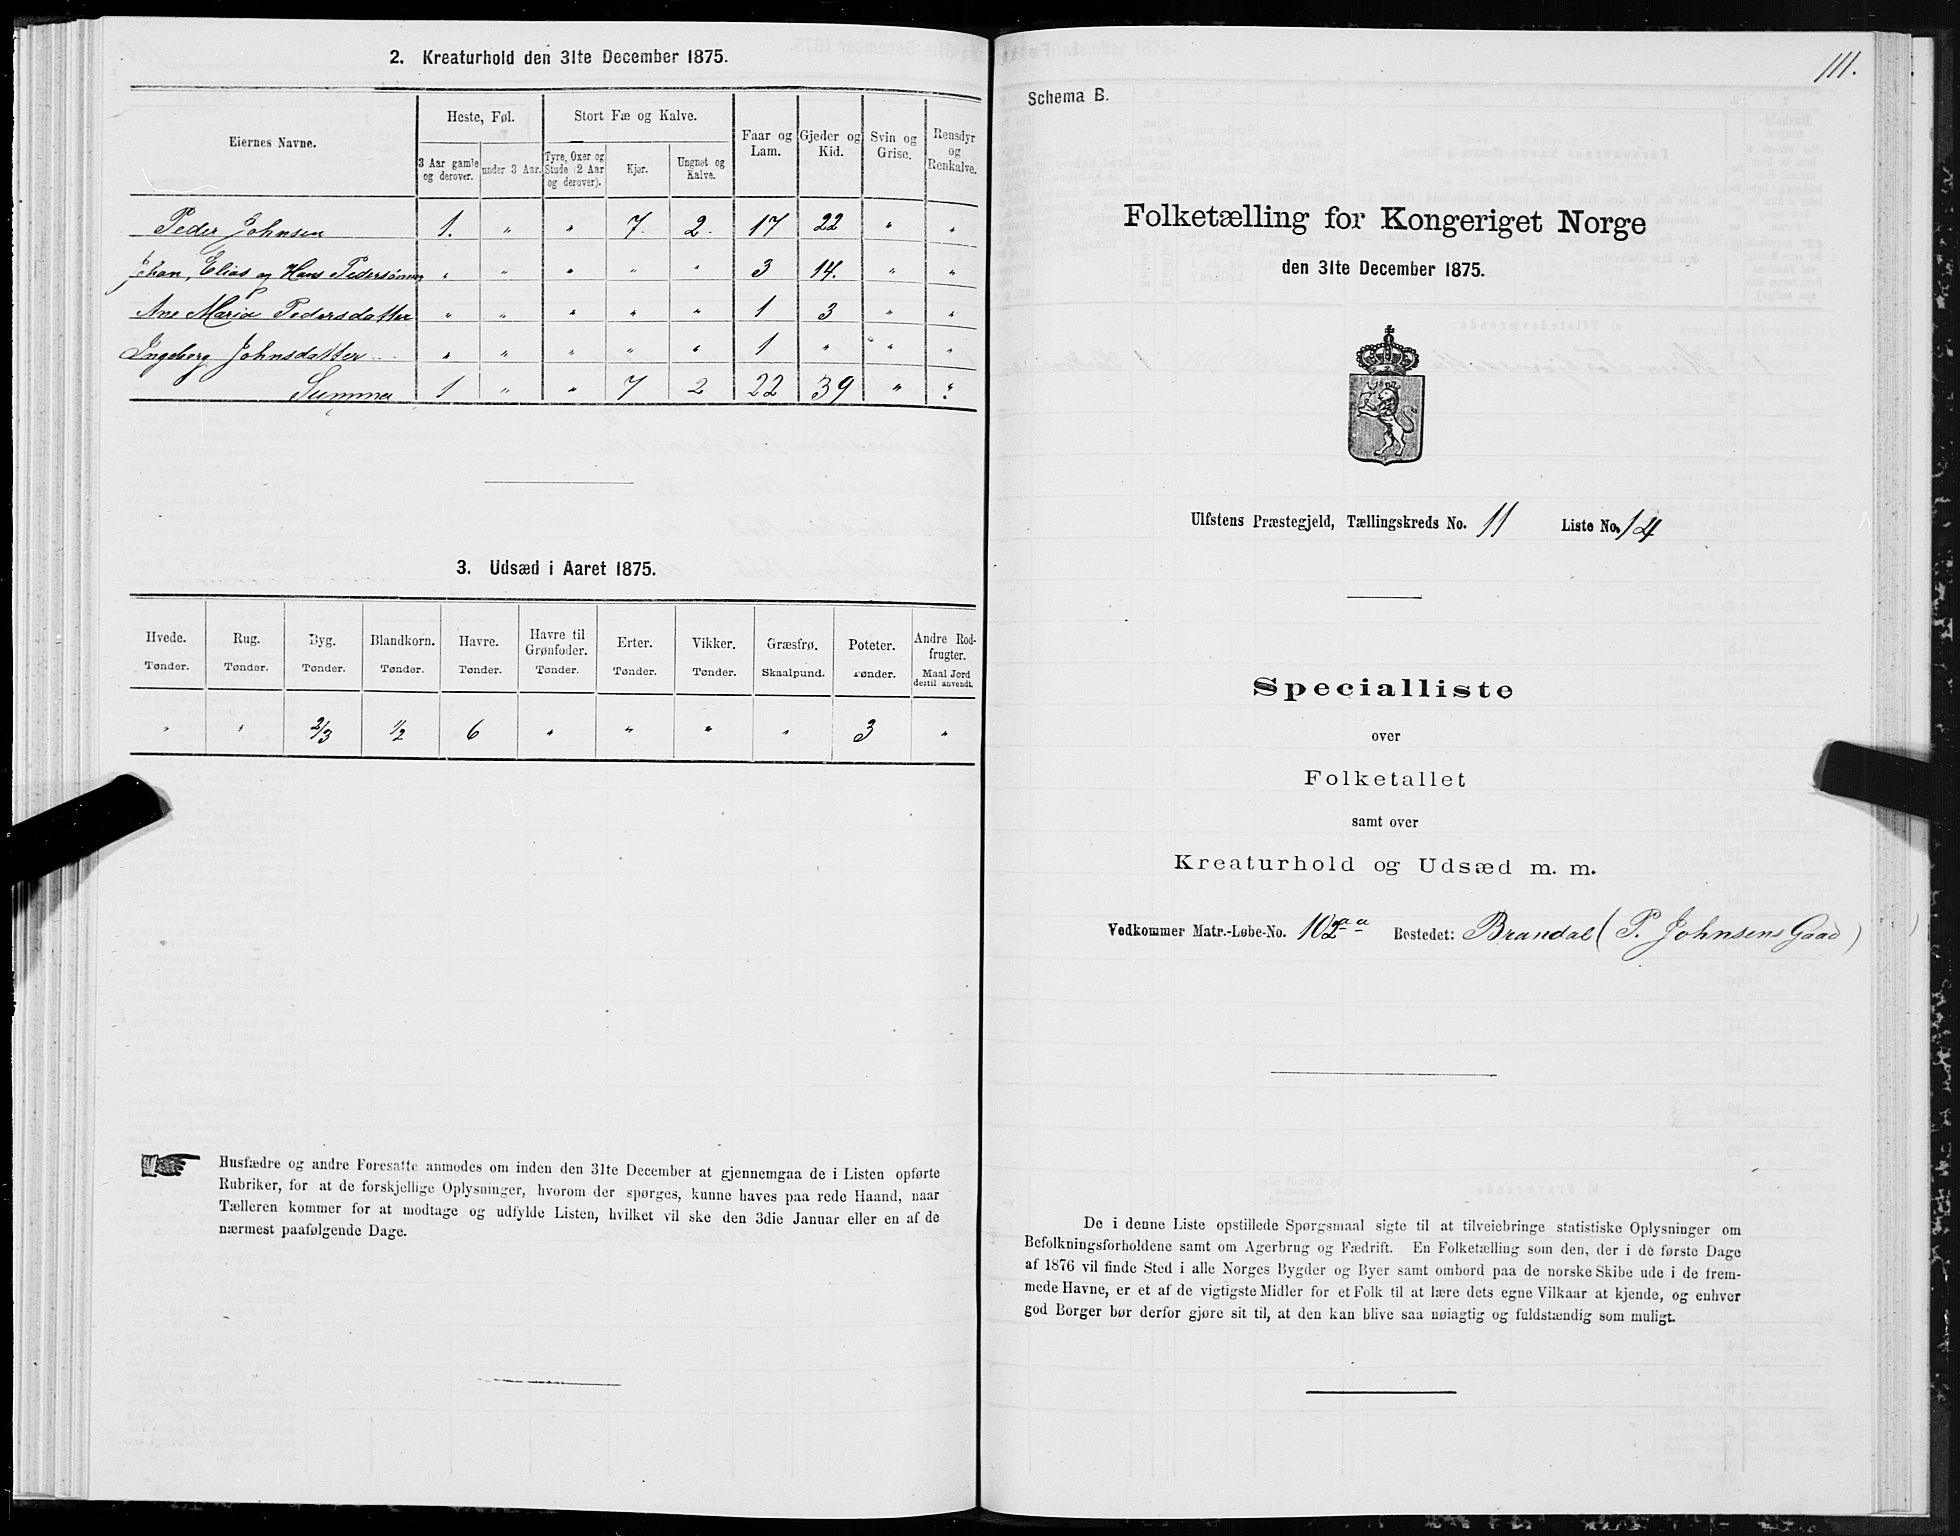 2. Kreaturhold den 31te December 1875.
Eiernes Navne.
Heste, Føl.
Stort Fæ og Kalve.
Faar og Lam.
Gjeder og Kid.
Svin og Grise.
Rensdyr og Renkalve.
3 Aar gamle og derover.
under 3 Aar.
Tyre, Oxer og Stude (2 Aar og derover).
Kjør.
Ungnøt og Kalve.
Peder Johnsen 1. " " 7. 2. 17 22 " "
Johan, Elias og Hans Pedersønner " " " " " 3 14. " "
Ane Maria Pedersdatter " " " " " 1 3 " "
Ingeborg Johnsdatter " " " " " 1 " " "
Summa 1 " " 7 2 22 39 " "
3. Udsæd i Aaret 1875.
Hvede. Rug. Byg. Blandkorn. Havre. Havre til Grønfoder. Erter. Vikker. Græsfrø. Poteter. Andre Rodfrugter.
Tønder. Tønder. Tønder. Tønder. Tønder. Tønder. Tønder. Tønder. Skaalpund. Tønder. Maal Jord dertil anvendt.
" " 2/3 1/2 6 " " " " 3 "
Husfædre og andre Foresatte anmodes om inden den 31te December at gjennemgaa de i Listen opførte
Rubriker, for at de forskjellige Oplysninger, hvorom der spørges, kunne haves paa rede Haand, naar
Tælleren kommer for at modtage og udfylde Listen, hvilket vil ske den 3die Januar eller en af de
nærmest paafølgende Dage.
111.
Schema B.
Folketælling for Kongeriget Norge
den 31te December 1875.
Ulfstens Præstegjeld, Tællingskreds No. 11 Liste No. 14
Specialliste
over
Folketallet
samt over
Kreaturhold og Udsæd m. m.
Vedkommer Matr.-Løbe-No. 102 a a Bostedet: Brandal (P. Johnsens Gaad)
De i denne Liste opstillede Spørgsmaal sigte til at tilveiebringe statistiske Oplysninger om
Befolkningsforholdene samt om Agerbrug og Fædrift. En Folketælling som den, der i de første Dage
af 1876 vil finde Sted i alle Norges Bygder og Byer samt ombord paa de norske Skibe ude i de frem-
mede Havne, er et af de vigtigste Midler for et Folk til at lære dets egne Vilkaar at kjende, og enhver
god Borger bør derfor gjøre sit til, at den kan blive saa nøiagtig og fuldstændig som muligt.